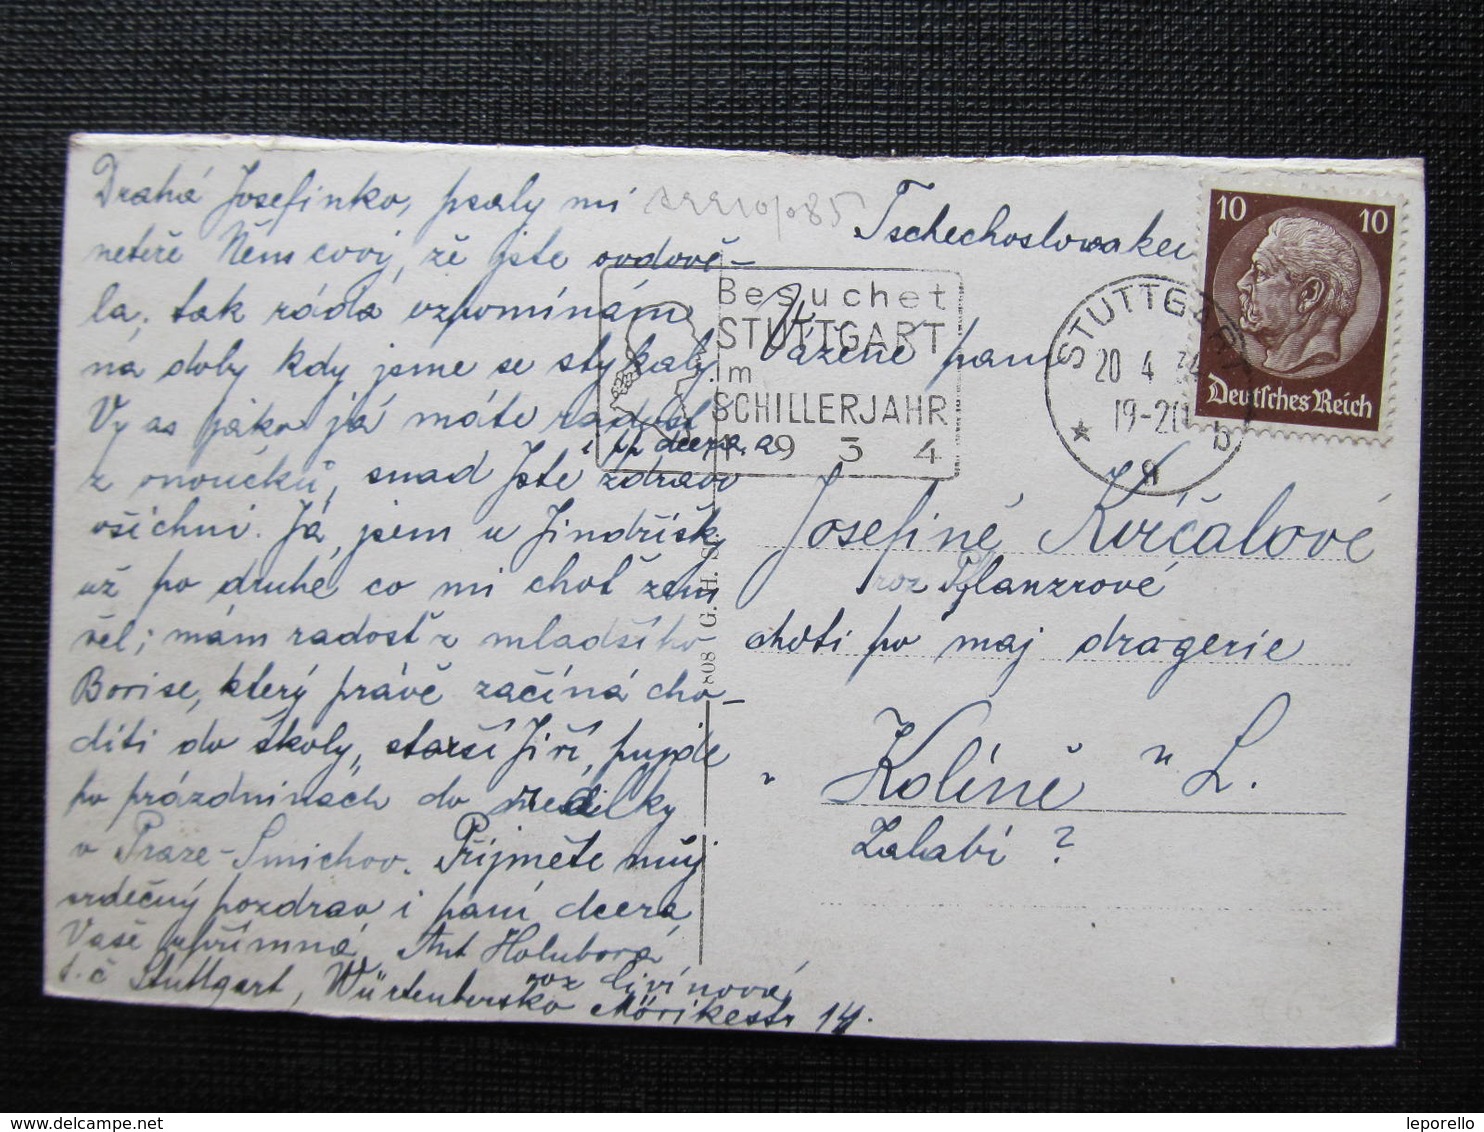 Drahá Josefinko, psaly mi
neteře Němcovy, že jste ovdově-
la, tak ráda vzpomínám
na doby kdy jsme se stýkaly
Vy as jako já máte radost
i pí dcera a
z vnoučků, snad jste zdrávi
všichni. Já jsem u Jindřišky
už po druhé co mi choť zem
řel; mám radosť z mladšího
Borise, který právě začíná cho-
diti do školy, starší Jiří, pujde
po prázdninách do
v Praze-Smíchov. Přijměte můj
srdečný pozdrav i paní dcera
Vaše upřímná Ant Holubová
roz
t.č Stuttgart, Würtenbersko Mörikestr 14.
Tschechoslowakei
Vážené paní
Josefině Kvíčalové
roz Pflanzrové
choti po maj dragerie
v Kolíně n L.
Zálabí ?
Besuchet
STUTTGART
im
SCHILLERJAHR
1934
STUTTGART
20 4 34
19-20
* 9 b
10 10
Deutsches Reich
808 G. H. S.
leporello